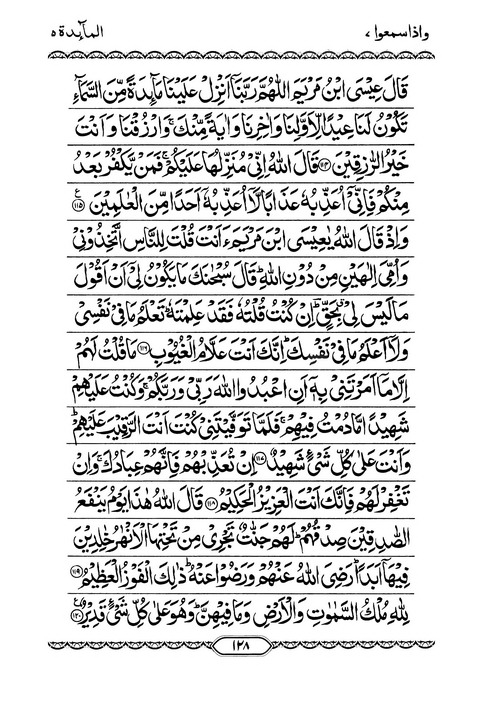 واذا سمعوا ٧ المآىِٕدة ٥
قَالَ عِيْسَى ابْنُ مَرْيَمَ اللّٰهُمَّ رَبَّنَاۤ اَنْزِلْ عَلَيْنَا مَآىِٕدَةً مِّنَ السَّمَآءِ
تَكُوْنُ لَنَا عِيْدًا لِّاَوَّلِنَا وَاٰخِرِنَا وَاٰيَةً مِّنْكَ ۚ وَارْزُقْنَا وَاَنْتَ
خَيْرُ الرّٰزِقِيْنَ ﴿١١٤﴾ قَالَ اللّٰهُ اِنِّيْ مُنَزِّلُهَا عَلَيْكُمْ ۚ فَمَنْ يَّكْفُرْ بَعْدُ
مِنْكُمْ فَاِنِّيْۤ اُعَذِّبُهٗ عَذَابًا لَّاۤ اُعَذِّبُهٗۤ اَحَدًا مِّنَ الْعٰلَمِيْنَ ﴿١١٥﴾ ع
وَاِذْ قَالَ اللّٰهُ يٰعِيْسَى ابْنَ مَرْيَمَ ءَاَنْتَ قُلْتَ لِلنَّاسِ اتَّخِذُوْنِيْ
وَاُمِّيَ اِلٰهَيْنِ مِنْ دُوْنِ اللّٰهِ ؕ قَالَ سُبْحٰنَكَ مَا يَكُوْنُ لِيْۤ اَنْ اَقُوْلَ
مَا لَيْسَ لِيْ ۗ بِحَقٍّ ؕ اِنْ كُنْتُ قُلْتُهٗ فَقَدْ عَلِمْتَهٗ ؕ تَعْلَمُ مَا فِيْ نَفْسِيْ
وَلَاۤ اَعْلَمُ مَا فِيْ نَفْسِكَ ؕ اِنَّكَ اَنْتَ عَلَّامُ الْغُيُوْبِ ﴿١١٦﴾ مَا قُلْتُ لَهُمْ
اِلَّا مَاۤ اَمَرْتَنِيْ بِهٖۤ اَنِ اعْبُدُوا اللّٰهَ رَبِّيْ وَرَبَّكُمْ ۚ وَكُنْتُ عَلَيْهِمْ
شَهِيْدًا مَّا دُمْتُ فِيْهِمْ ۚ فَلَمَّا تَوَفَّيْتَنِيْ كُنْتَ اَنْتَ الرَّقِيْبَ عَلَيْهِمْ ؕ
وَاَنْتَ عَلٰى كُلِّ شَيْءٍ شَهِيْدٌ ﴿١١٧﴾ اِنْ تُعَذِّبْهُمْ فَاِنَّهُمْ عِبَادُكَ ۚ وَاِنْ
تَغْفِرْ لَهُمْ فَاِنَّكَ اَنْتَ الْعَزِيْزُ الْحَكِيْمُ ﴿١١٨﴾ قَالَ اللّٰهُ هٰذَا يَوْمُ يَنْفَعُ
الصّٰدِقِيْنَ صِدْقُهُمْ ؕ لَهُمْ جَنّٰتٌ تَجْرِيْ مِنْ تَحْتِهَا الْاَنْهٰرُ خٰلِدِيْنَ
فِيْهَاۤ اَبَدًا ؕ رَضِيَ اللّٰهُ عَنْهُمْ وَرَضُوْا عَنْهُ ؕ ذٰلِكَ الْفَوْزُ الْعَظِيْمُ ﴿١١٩﴾
لِلّٰهِ مُلْكُ السَّمٰوٰتِ وَالْاَرْضِ وَمَا فِيْهِنَّ ؕ وَهُوَ عَلٰى كُلِّ شَيْءٍ قَدِيْرٌ ﴿١٢٠﴾ ع
١٢٨